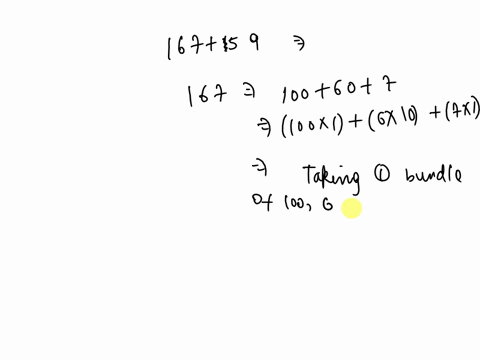 167+159 ⇒
167 ⇒ 100+60+7
⇒ (100×1)+(6×10)+(7×1)
⇒ Taking ① bundle
Of 100, 6